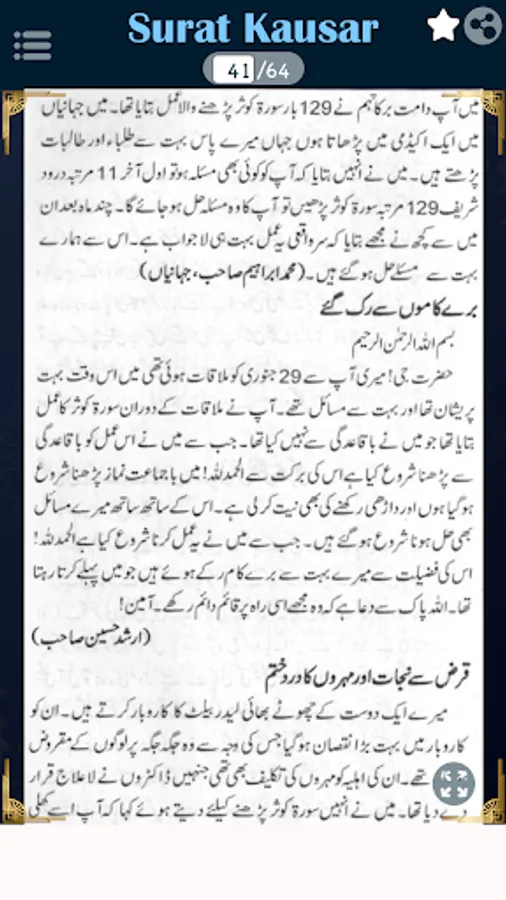 Surat Kausar
41/64
میں آپ دامت برکاتہم نے 129 بار سورۃ کوثر پڑھنے والا عمل بتایا تھا۔ میں جہانیاں
میں ایک اکیڈمی میں پڑھاتا ہوں جہاں میرے پاس بہت سے طلباء اور طالبات
پڑھتے ہیں۔ میں نے انہیں بتایا کہ آپ کو کوئی بھی مسئلہ ہو تو اول آخر 11 مرتبہ درود
شریف 129 مرتبہ سورۃ کوثر پڑھیں تو آپ کا وہ مسئلہ حل ہو جائے گا۔ چند ماہ بعد ان
میں سے کچھ نے مجھے بتایا کہ سر واقعی یہ عمل بہت ہی لاجواب ہے۔ اس سے ہمارے
بہت سے مسئلے حل ہو گئے ہیں۔ (محمد ابراہیم صاحب، جہانیاں)
برے کاموں سے رک گئے
بسم اللہ الرحمٰن الرحیم
حضرت جی! میری آپ سے 29 جنوری کو ملاقات ہوئی تھی میں اس وقت بہت
پریشان تھا اور بہت سے مسائل تھے۔ آپ نے ملاقات کے دوران سورۃ کوثر کا عمل
بتایا تھا جو میں نے باقاعدگی سے نہیں کیا تھا۔ جب سے میں نے اس عمل کو باقاعدگی
سے پڑھنا شروع کیا ہے اس کی برکت سے الحمدللہ! میں باجماعت نماز پڑھنا شروع
ہو گیا ہوں اور داڑھی رکھنے کی بھی نیت کر لی ہے۔ اس کے ساتھ ساتھ میرے مسائل
بھی حل ہونا شروع ہو گئے ہیں۔ جب سے میں نے یہ عمل کرنا شروع کیا ہے الحمدللہ!
اس کی فضیلت سے میرے بہت سے برے کام رکے ہوئے ہیں جو میں پہلے کرتا رہتا
تھا۔ اللہ پاک سے دعا ہے کہ وہ مجھے اسی راہ پر قائم دائم رکھے۔ آمین!
(ارشد حسین صاحب)
قرض سے نجات اور مہروں کا درد ختم
میرے ایک دوست کے چھوٹے بھائی لیدر بیلٹ کا کاروبار کرتے ہیں۔ ان کو
کاروبار میں بہت بڑا نقصان ہو گیا جس کی وجہ سے وہ جگہ جگہ پر لوگوں کے مقروض
تھے۔ ان کی اہلیہ کو مہروں کی تکلیف بھی تھی جنہیں ڈاکٹروں نے لاعلاج قرار
دے دیا تھا۔ میں نے انہیں سورۃ کوثر پڑھنے کیلئے دیتے ہوئے کہا کہ آپ اسے کھلی